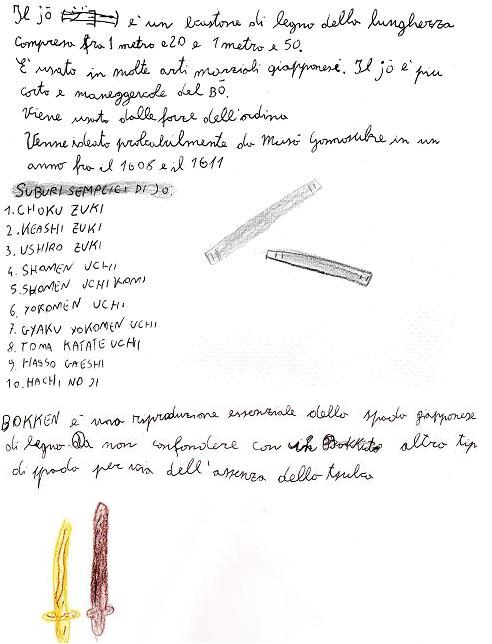 Il jō è un bastone di legno della lunghezza
compresa fra 1 metro e 20 e 1 metro e 50.
È usato in molte arti marziali giapponesi. Il jō è piu
corto e maneggevole del BŌ.
Viene usato dalle forze dell'ordine
Venne ideato probabilmente da Musō Gonnosuke in un
anno fra il 1608 e il 1611
SUBURI SEMPLICI DI JO.
1. CHOKU ZUKI
2. KEASHI ZUKI
3. USHIRO ZUKI
4. SHOMEN UCHI
5. SHOMEN UCHI KOMI
6. YOKOMEN UCHI
7. GYAKU YOKOMEN UCHI
8. TOMA KATATE UCHI
9. HASSO GAESHI
10. HACHI NO JI
BOKKEN è una riproduzione essenziale della spada giapponese
di legno. Da non confondere con altro tip
di spada per via dell'assenza dello tsuba